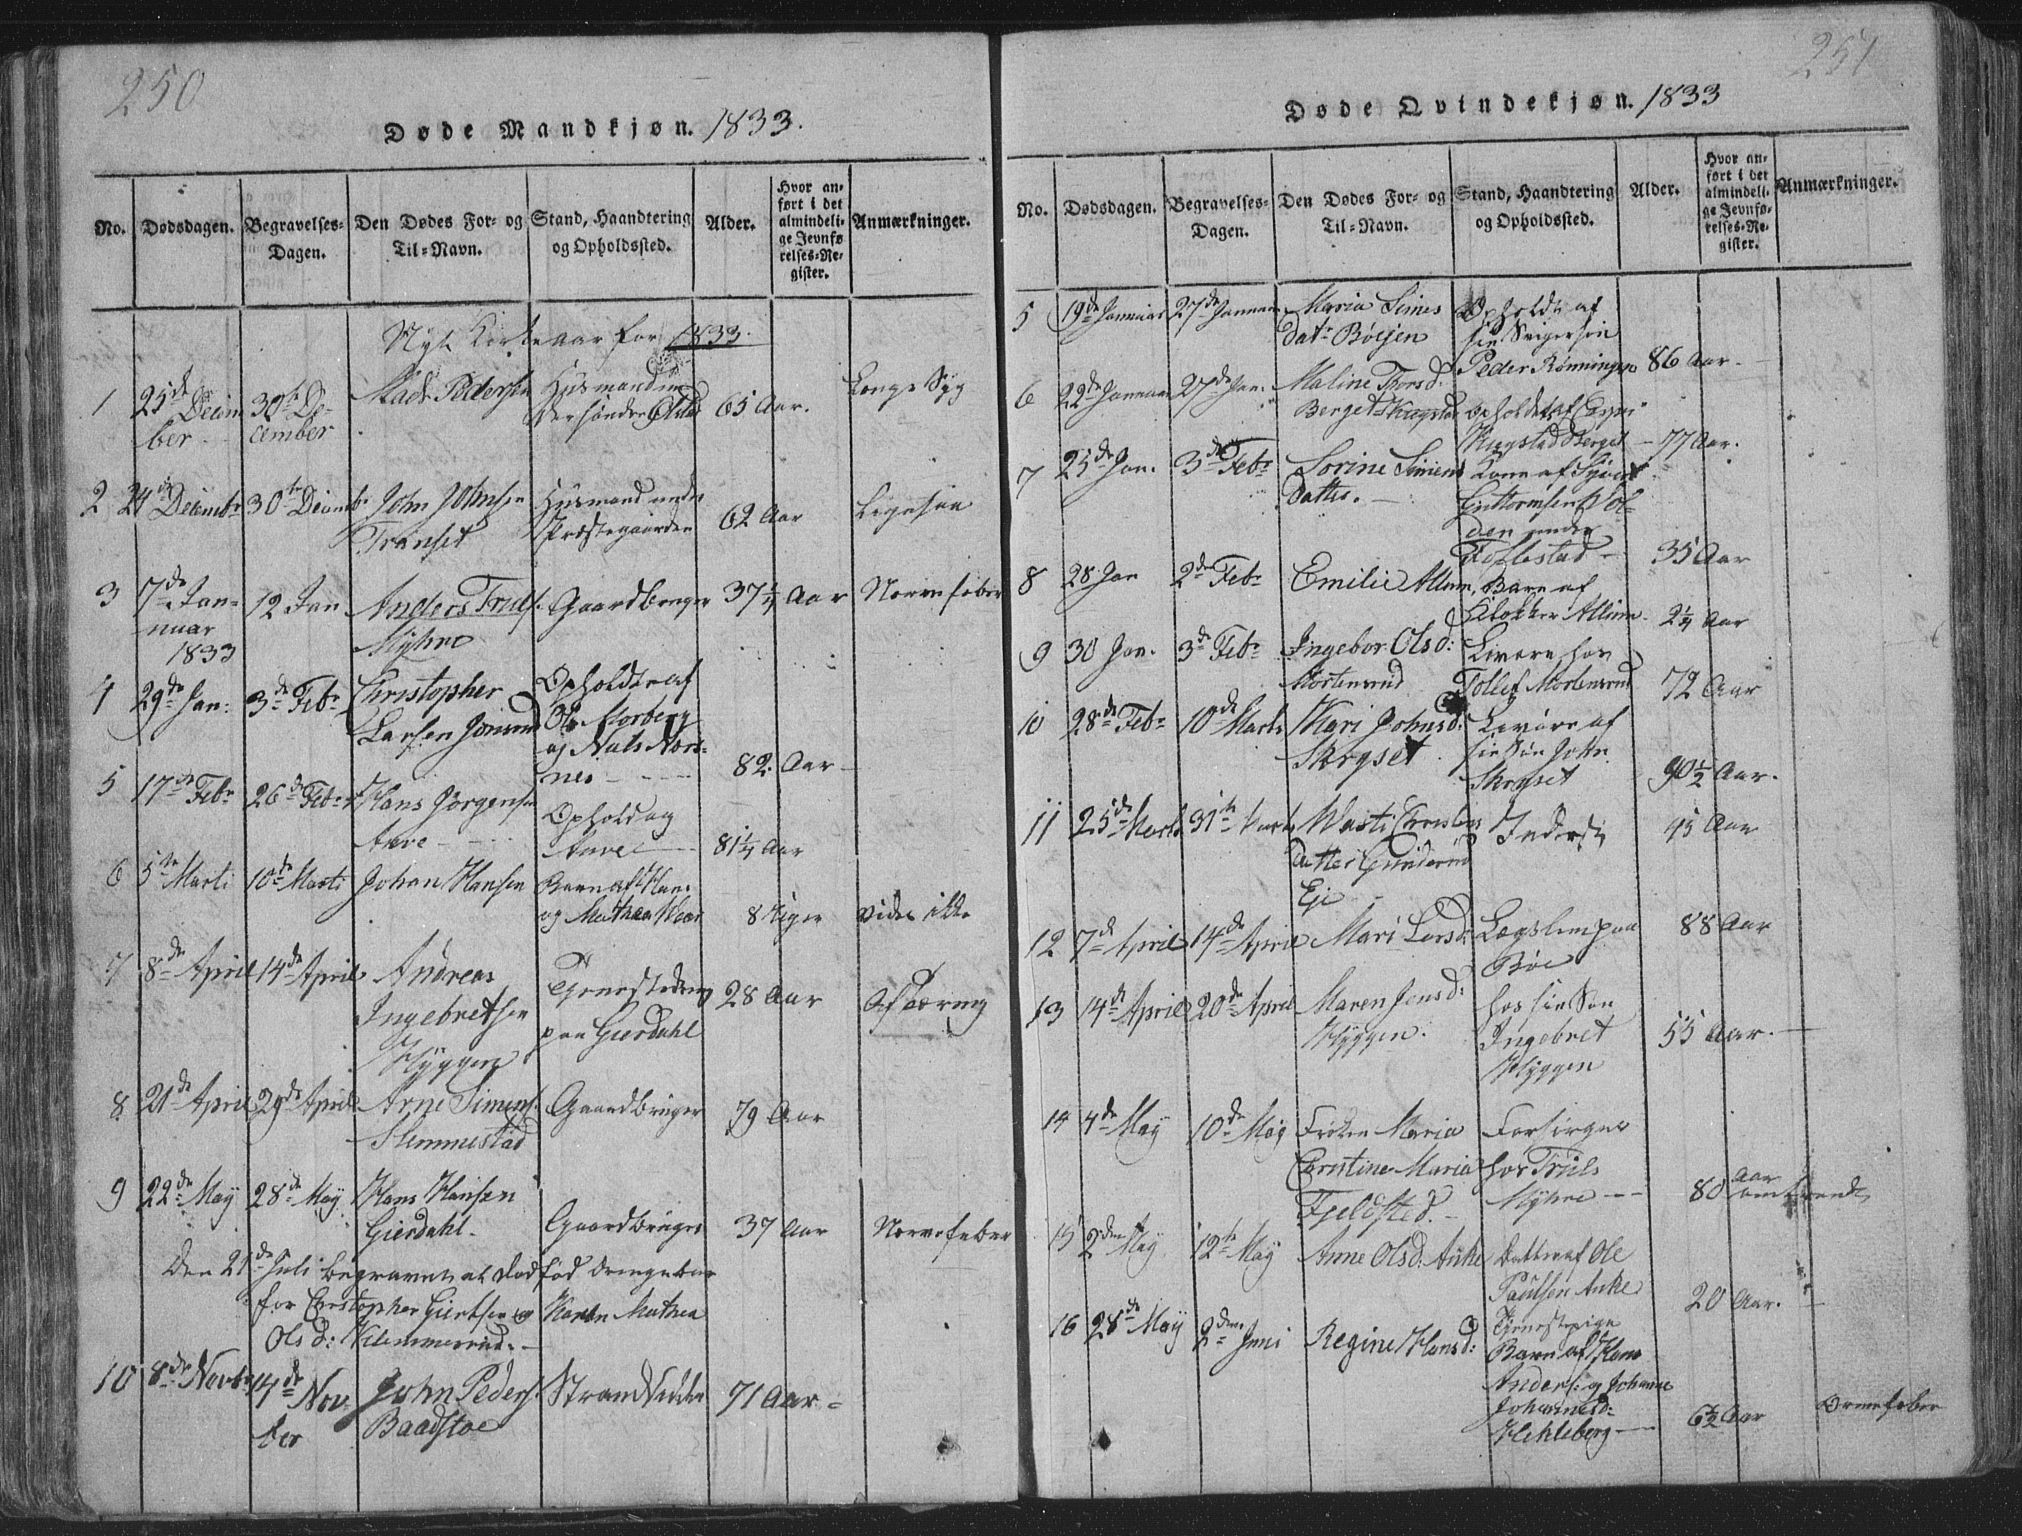 250
Døde Mandkjøn. 1833.
No.
Dødsdagen.
Begravelses-
Dagen.
Den Dødes For- og
Til-Navn.
Stand, Haandtering
og Opholdssted.
Alder.
Hvor an-
ført i det
almindeli-
ge Jevnfø
relses-Re-
gister.
Anmærkninger.
Nyt Kirkeaar for 1833.
1
25de Decem
ber
30te De-
cember
Mads Pedersen
Husmand
65 Aar.
Længe Syg
2
24de Decembr
30te Decembr
John Johnsen
Transet
Husmand under
Præstegaarden
62 Aar
Ligesaa
3
7de Jan-
nuar
1833
12 Jan
Anders Truls.
Myhre
Gaardbruger
37 1/4 Aar
Nervefeber
4
29de Jan:
3de Febr
Christopher
Larsen
Opholdt af
Ole Morberg
og Niels Nær-
nes
82 Aar
5
17de Febr
26de Febr
Hans Jörgensen
Aare
Ophold og
Aare
81 1/4 Aar
6
5te Marti
10de Marti
Johan Hansen
Barn af Hans
og Mathea
8 Uger
vides ikke
7
8de April
14de April
Andreas
Ingebretsen
Hyggen
Tjenestedreng
paa Gierdahl
28 Aar
Aftæring
8
21de April
29de April
Arne Simens.
Slemmestad
Gaardbruger
79 Aar
9
22de May
28de May
Hans Hansen
Gierdahl.
Gaardbruger
37 Aar
Nervefeber
Den 21de Juli begravet et dødfød drengebarn
for Christopher Giertsen og Karen Mathea
Olsd: Klemmerud.
10
8de Novbr
14de Nov
ber
John Peders.
Baadstøe
Strandsidder
71 Aar
251
Døde Qvindekjøn. 1833
No.
Dødsdagen.
Begravelses-
Dagen.
Den Dødes For- og
Til-Navn.
Stand, Haandtering
og Opholdssted.
Alder.
Hvor an-
ført i det
almindeli-
ge Jevnfø-
relses-Re-
gister.
Anmærkninger.
5
19de Januar
27de Januar
Maria Simes
datr Böejen
Opholdt af
sin Svigersön
Peder Rönningen
86 Aar
6
22de Januar
27de Jan.
Maline Thorsd.
Berget
opholdt af
77 Aar.
7
25de Jan.
3de Febr
Sorine Simens
datter.
Kone af Syver
Guttormsen Vol-
den under
Follestad
35 Aar
8
28 Jan
2de Febr
Emilie Allum,
Barn af
Klokker Allum
2 1/4 Aar
9
30 Jan.
3de Febr
Ingebor Olsd:
Mortensrud
Livøre hos
Tollef Mortensrud
72 Aar
10
28de Febr
10de Marts
Kari Johnsd:
Skryset
Levøre af
sin Søn John
Skryset
90 1/2 Aar.
11
25de Marts
31te Marts
Marti Christens
datter
Eje
Inderst
45 Aar
12
7de April
14de April
Mari Larsd:
Lægslem paa
Böe
88 Aar
13
14de April
20de April
Maren Jensd:
Hyggen.
hos sin Søn
Ingebret
Hyggen
55 Aar.
14
4de May
10de May
Fröken Maria
Christine Maria
Fjeldsted.
Forsörges
hos Truls
Myhre
80 Aar
omtrendt
15
2den May
12te May
Anne Olsd: Auke
Datter af Ole
Paulsen Auke
20 Aar.
16
28de May
2den Juni
Regine Hansd:
Tjenestepige
Barn af Hans
Anders: og Johanne
Johannesd:
Hekleberg
6 1/2 Aar
Ormefeber